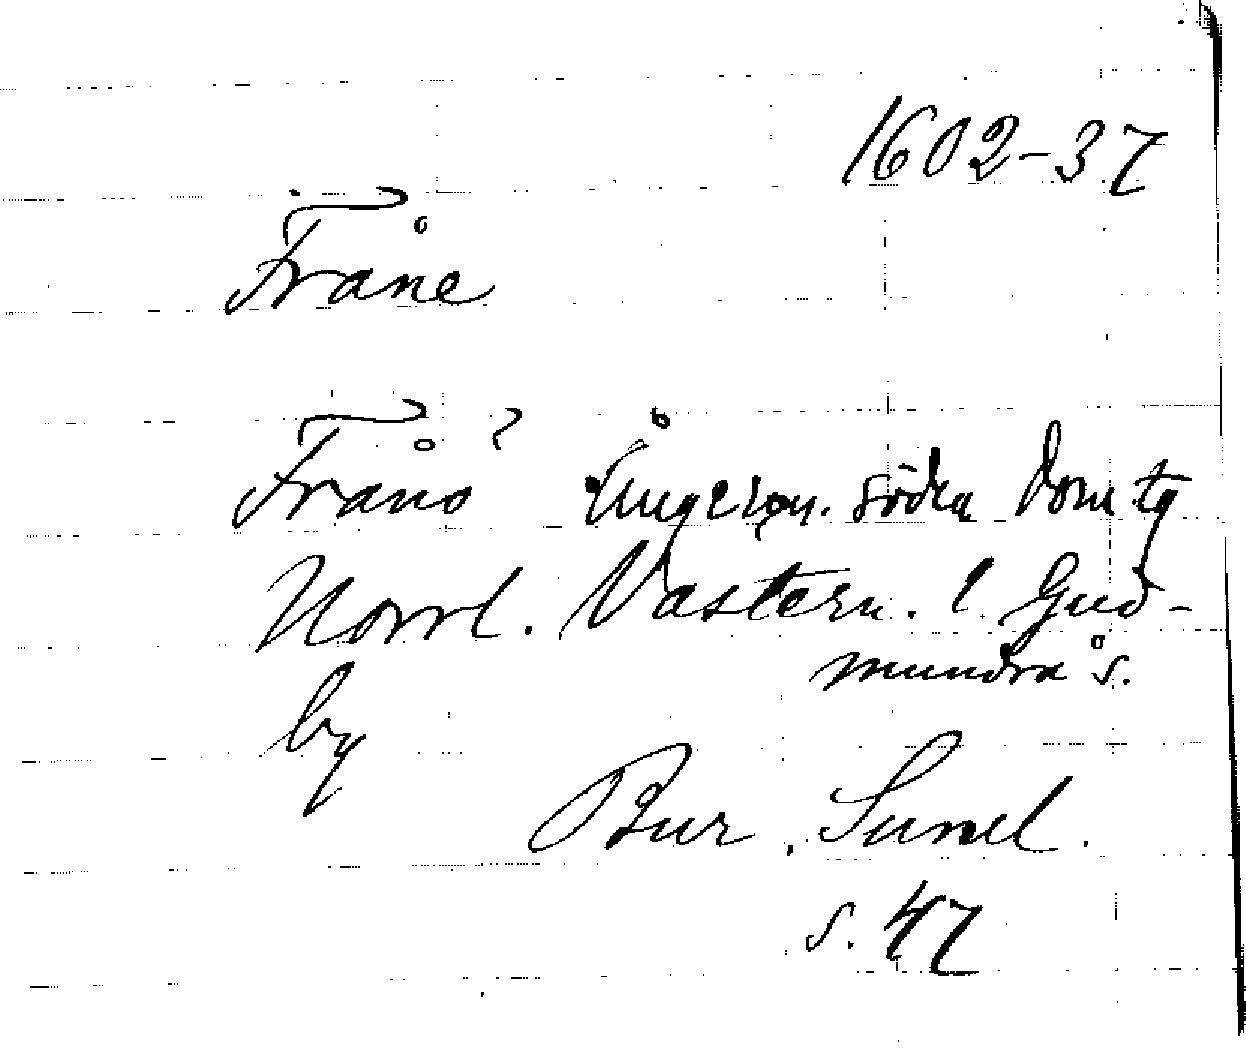 1602-37
Fråne
Frånö? Ångerm. södra domsg
Norrl. Västern. l. Gud-
mundrå s.
by
Bur. Sunel.
s. 47